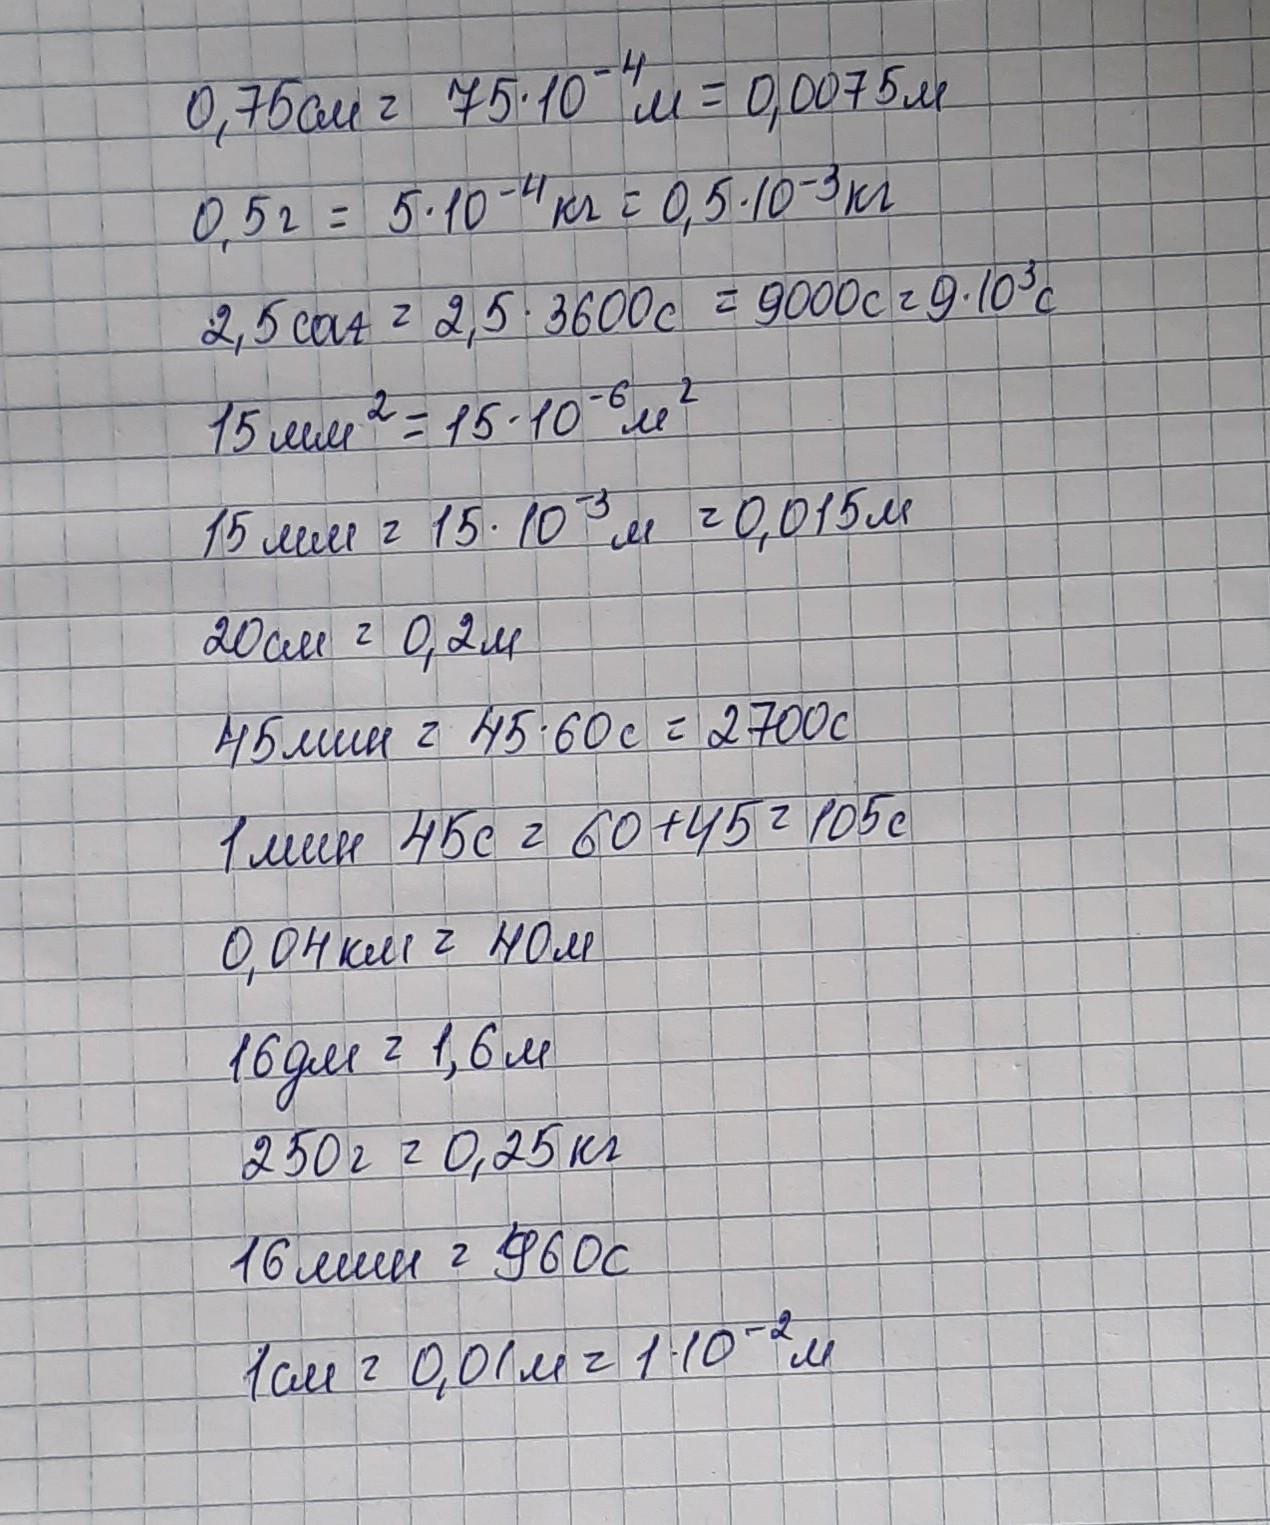 0,75см = 75·10⁻⁴м = 0,0075м
0,5г = 5·10⁻⁴кг = 0,5·10⁻³кг
2,5сат = 2,5·3600с = 9000с = 9·10³с
15мм² = 15·10⁻⁶м²
15мм = 15·10⁻³м = 0,015м
20см = 0,2м
45мин = 45·60с = 2700с
1мин 45с = 60+45 = 105с
0,04км = 40м
16дм = 1,6м
250г = 0,25кг
16мин = 960с
1см = 0,01м = 1·10⁻²м